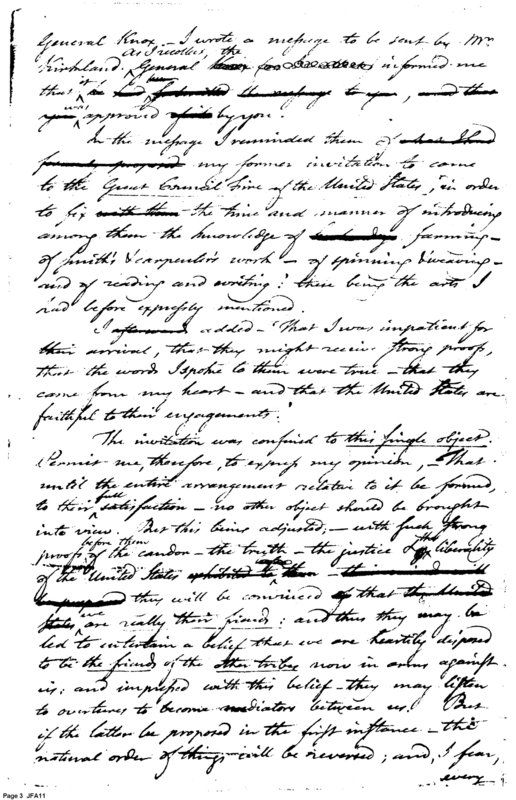 General Knox – I wrote a message to be sent by Mr.
Kirkland. As I recollect, the General informed me
that it had been
was approved by you.
In the message I reminded them of what I had
formerly proposed my former invitation to come
to the Great Council Fire of the United States, "in order
to fix with them the time and manner of introducing
among them the knowledge of farming –
of smith's & carpenter's work – of spinning & weaving –
and of reading and writing": these being the arts I
had before expressly mentioned.
I afterward added – "That I was impatient for
their arrival, that they might receive strong proofs,
that the words I spoke to them were true – that they
came from my heart – and that the United States are
faithful to their engagements."
The invitation was confined to this single object.
Permit me, therefore, to express my opinion, – That
until the entire arrangement relative to it be formed,
to their full satisfaction – no other object should be brought
into view. But this being adjusted; – with such strong
proofs before them of the candor – the truth – the justice & the liberality
of the United States
they will be convinced that the United
States we are really their friends: and thus they may be
led to entertain a belief that we are heartily disposed
to be the friends of the other tribes now in arms against
us: and impressed with this belief – they may listen
to overtures to become mediators between us. But
if the latter be proposed in the first instance – the
natural order of things will be reversed; and, I fear,
every
Page 3 JFA11